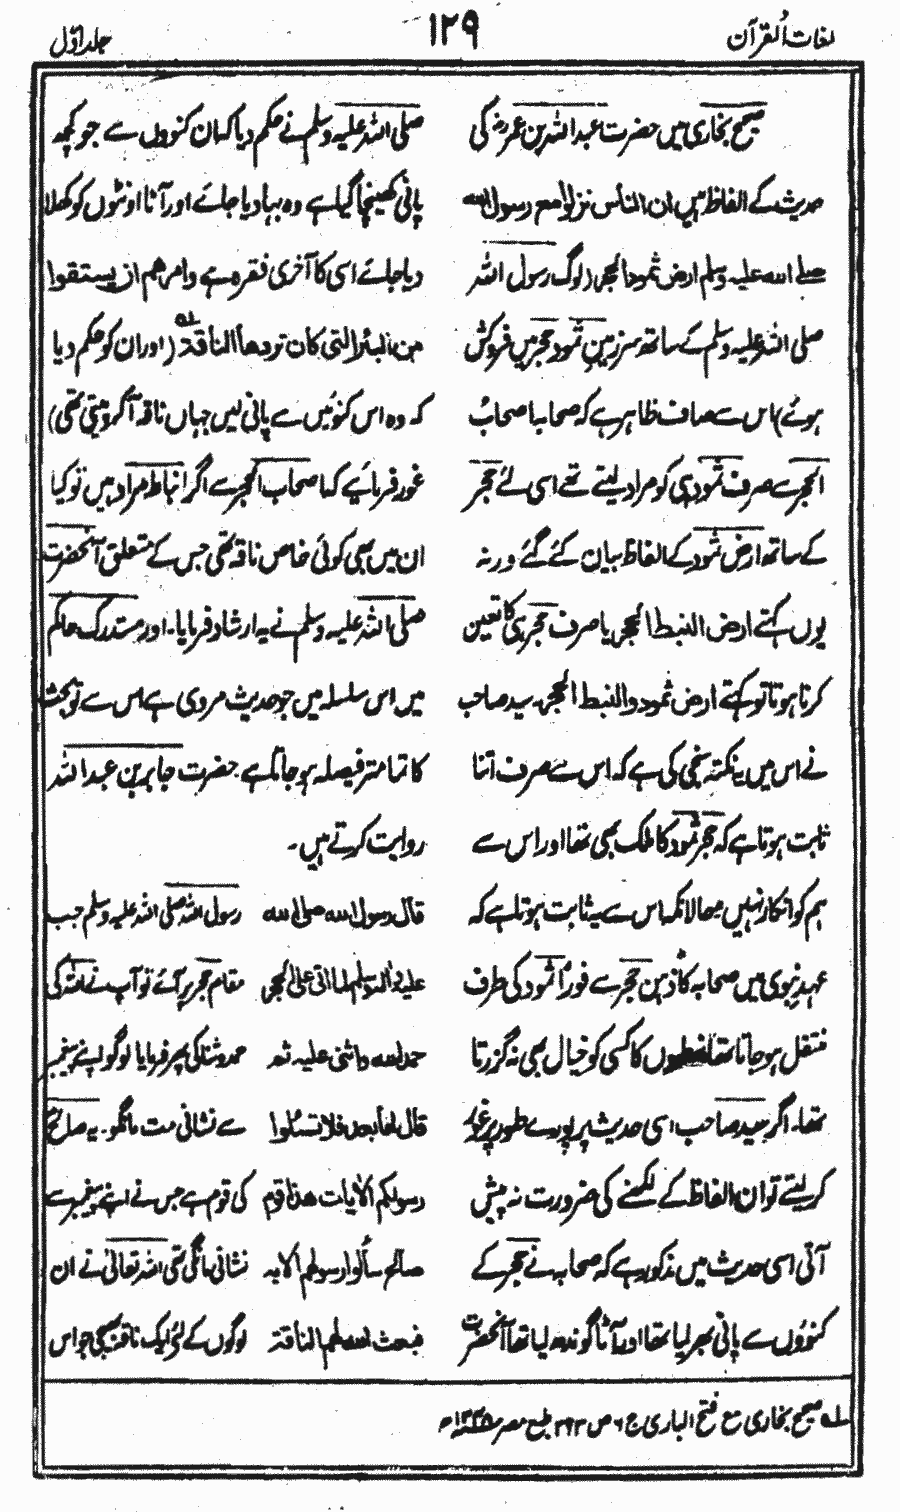 لغات القرآن
۱۲۹
جلد اوّل
صحیح بخاری میں حضرت عبداللہ بن عمرؓ کی
حدیث کے الفاظ ہیں ان الناس نزلوا مع رسول اللہ
صلی اللہ علیہ وسلم ارض ثمود الحجر (لوگ رسول اللہ
صلی اللہ علیہ وسلم کے ساتھ سرزمین ثمود حجر میں فروکش
ہوئے) اس سے صاف ظاہر ہے کہ صحابہ اصحابُ
الحجر سے صرف ثمود ہی کو مراد لیتے تھے اسی لئے حجر
کے ساتھ ارض ثمود کے الفاظ بیان کئے گئے ورنہ
یوں کہتے ارض النبط الحجر یا صرف حجر ہی کا تعین
کرنا ہوتا تو کہتے ارض ثمود والنبط الحجر۔ سید صاحب
نے اس میں یہ نکتہ سنجی کی ہے کہ اس سے صرف اتنا
ثابت ہوتا ہے کہ حجر ثمود کا ملک بھی تھا اور اس سے
ہم کو انکار نہیں حالانکہ اس سے یہ ثابت ہوتا ہے کہ
عہدِ نبوی میں صحابہ کا ذہن حجر سے فوراً ثمود کی طرف
منتقل ہو جاتا تھا نبطیوں کا کسی کو خیال بھی نہ گزرتا
تھا۔ اگر سید صاحب اسی حدیث پر پورے طور پر غور
کر لیتے تو ان الفاظ کے لکھنے کی ضرورت نہ پیش
آتی اسی حدیث میں مذکور ہے کہ صحابہ نے حجر کے
کنووں سے پانی بھر لیا تھا اور آٹا گوندھ لیا تھا آنحضرت
صلی اللہ علیہ وسلم نے حکم دیا کہ ان کنووں سے جو کچھ
پانی کھینچا گیا ہے وہ بہا دیا جائے اور آٹا اونٹوں کو کھلا
دیا جائے اسی کا آخری فقرہ ہے وامرھم ان یستقوا
من البئر التی کان تردھا الناقۃ لہ (اور ان کو حکم دیا
کہ وہ اس کنوئیں سے پانی لیں جہاں ناقہ آکر پیتی تھی)
غور فرمائیے کہ اصحاب الحجر سے اگر انباط مراد ہیں تو کیا
ان میں بھی کوئی خاص ناقہ تھی جس کے متعلق آنحضرت
صلی اللہ علیہ وسلم نے یہ ارشاد فرمایا۔ اور مستدرک حاکم
میں اس سلسلہ میں جو حدیث مروی ہے اس سے تو بحث
کا تمامتر فیصلہ ہو جاتا ہے۔ حضرت جابر بن عبداللہ
روایت کرتے ہیں۔
قال رسول اللہ صلی اللہ رسول اللہ صلی اللہ علیہ وسلم جب
علیہ وآلہ وسلم لما اتی علی الحجر مقام حجر پر آئے تو آپ نے اللہ کی
حمد اللہ واثنی علیہ ثم حمد و ثنا کی پھر فرمایا لوگو اپنے پیغمبر
قال اما بعد فلا تسئلوا سے نشانی مت مانگو۔ یہ صالح
رسولکم الآیات ھذا قوم کی قوم ہے جس نے اپنے پیغمبر سے
صالح سألوا رسولھم الآیہ نشانی مانگی تھی اللہ تعالیٰ نے ان
فبعث اللہ لھم الناقۃ لوگوں کے لئے ایک ناقہ بھیجی جو اس
لہ صحیح بخاری مع فتح الباری ج ۶ ص ۲۹۳ طبع مصر